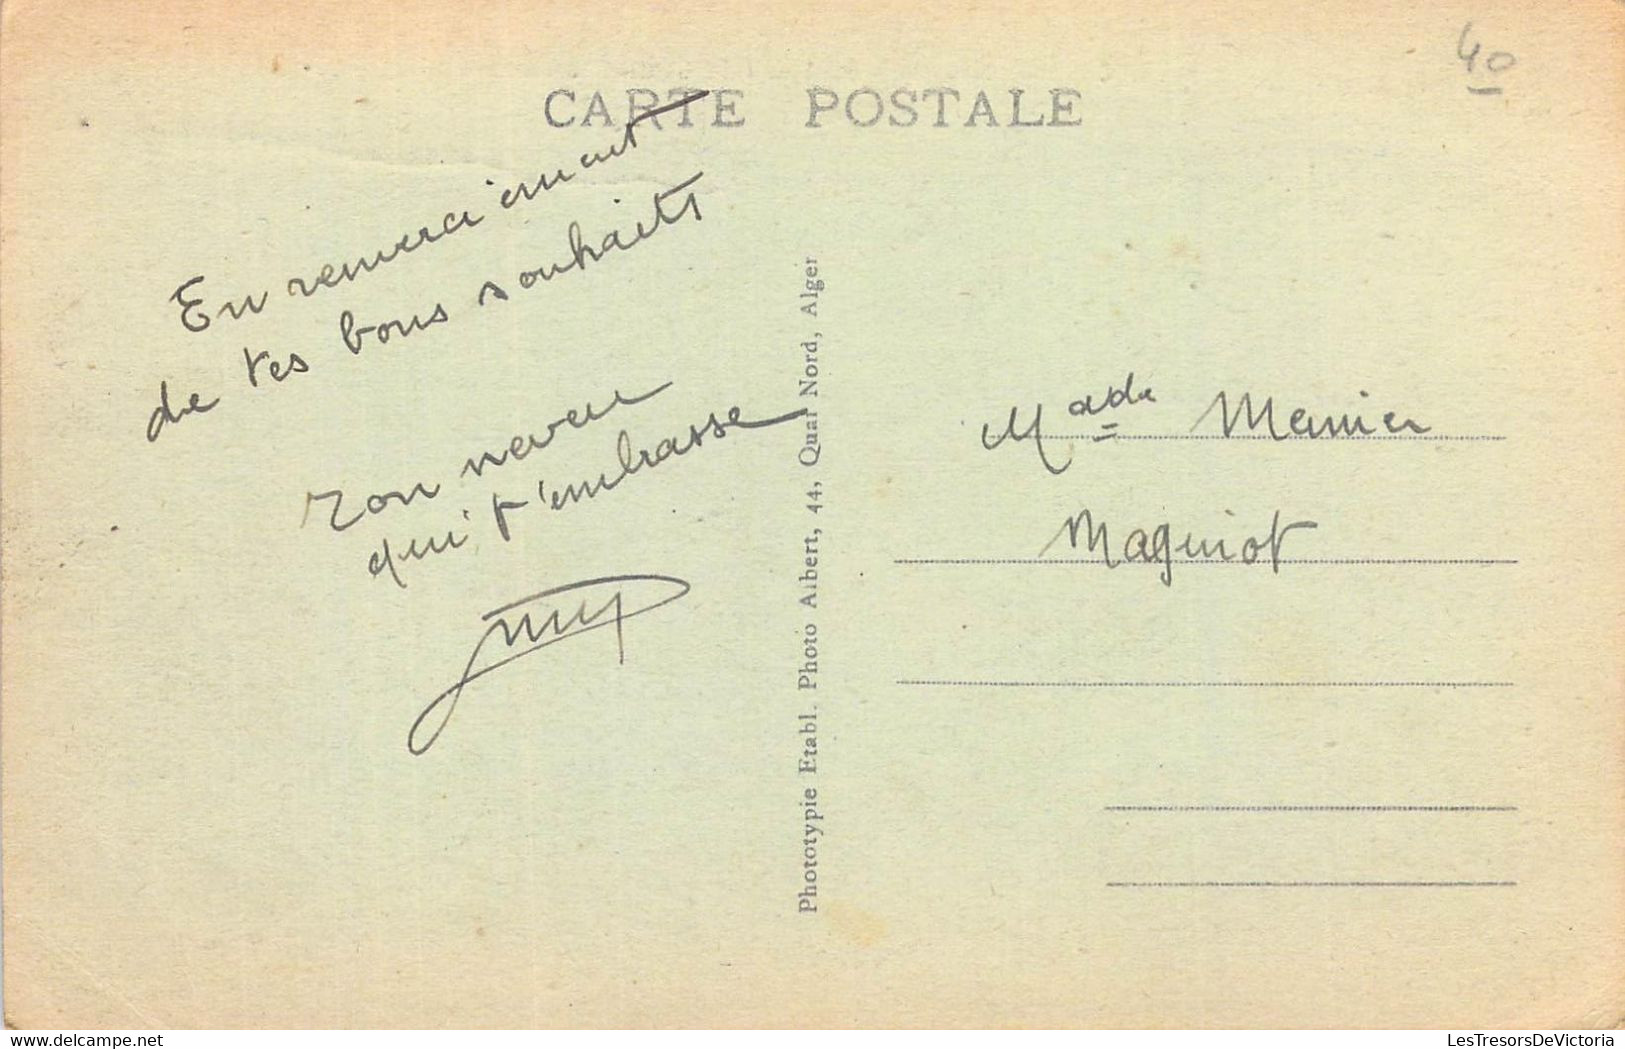 CARTE POSTALE
40
En remerciement
de tes bons souhaits
Ton neveu
qui t'embrasse
Phototypie Etabl. Photo Albert, 44, Quai Nord, Alger
Made Menier
Maguiot
LesTresorsDeVictoria
www.delcampe.net